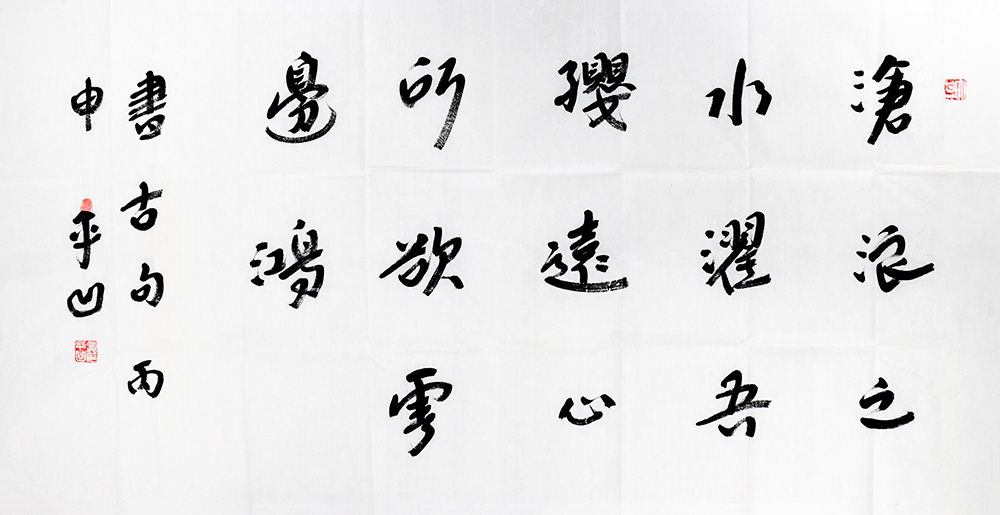 滄浪之
水濯吾
纓遠心
所欲雲
邊鴻
書古句丙
申 平凹